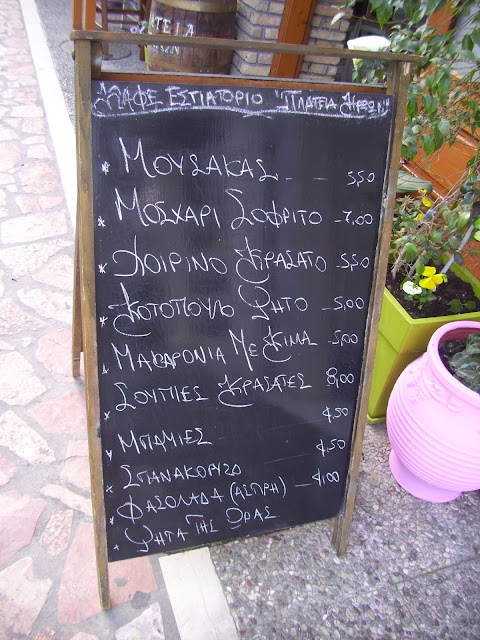 ΚΑΦΕ ΕΣΤΙΑΤΟΡΙΟ "ΠΛΑΤΕΙΑ ΗΡΩΩΝ"
* ΜΟΥΣΑΚΑΣ - - 5,50
* ΜΟΣΧΑΡΙ ΣΟΦΡΙΤΟ - 7,00
* ΧΟΙΡΙΝΟ ΚΡΑΣΑΤΟ - 5,50
* ΚΟΤΟΠΟΥΛΟ ΨΗΤΟ - 5,00
* ΜΑΚΑΡΟΝΙΑ ΜΕ ΚΙΜΑ - 5,00
* ΣΟΥΠΙΕΣ ΚΡΑΣΑΤΕΣ 8,00
* ΜΠΑΜΙΕΣ - 4,50
* ΣΠΑΝΑΚΟΡΥΖΟ 4,50
* ΦΑΣΟΛΑΔΑ (ΑΣΠΡΗ) - 4,00
* ΨΗΤΑ ΤΗΣ ΩΡΑΣ